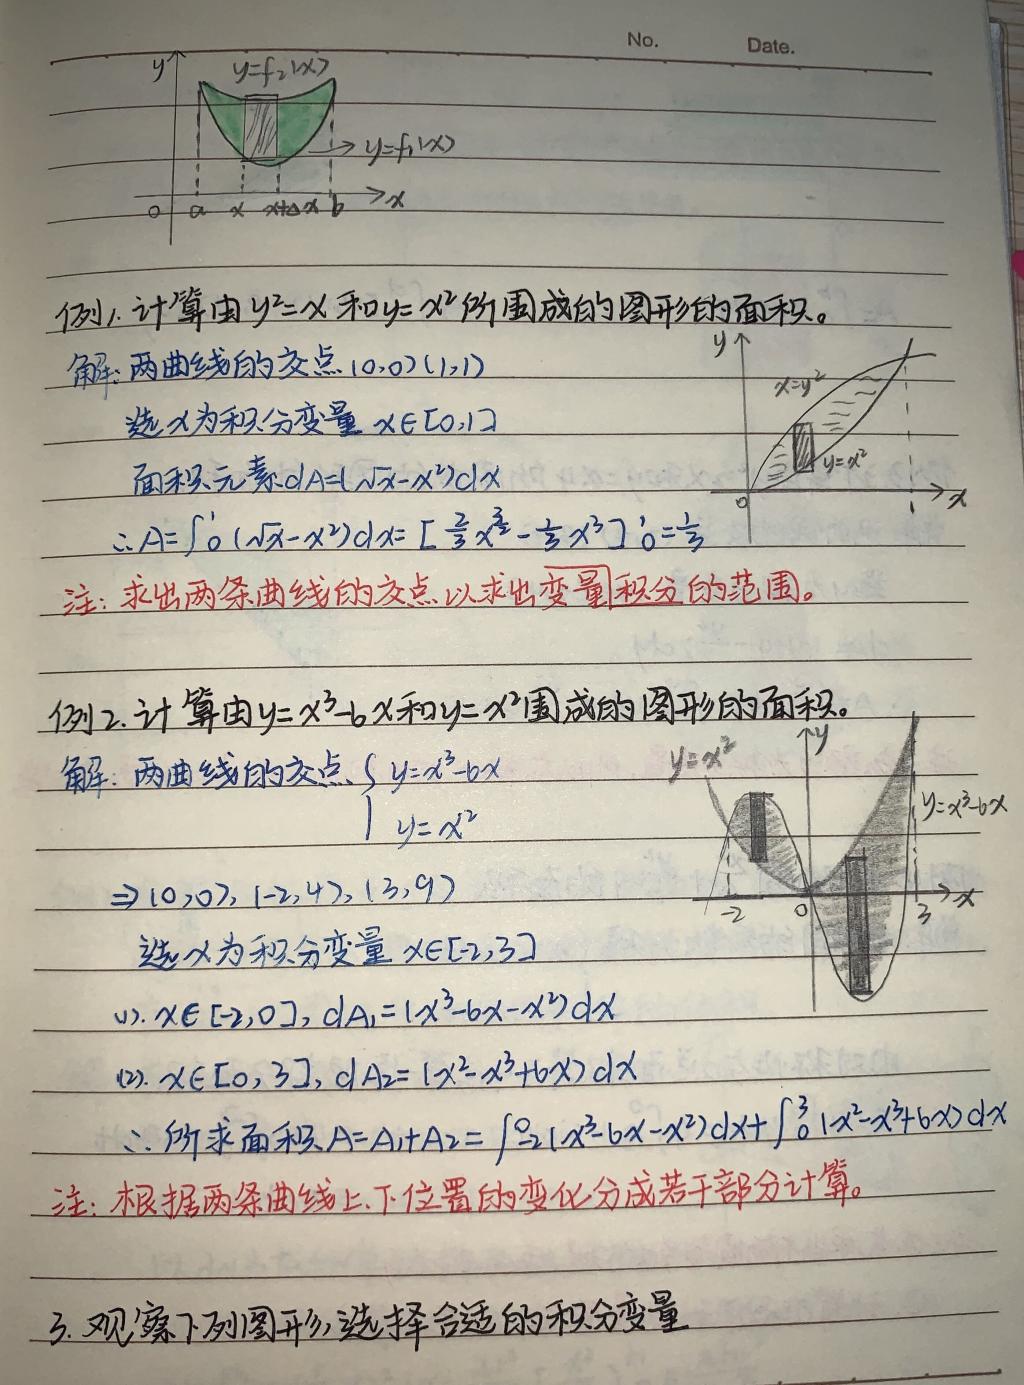 No. Date.
y y=f₂(x)
y=f₁(x)
0 a x x+Δx b x
例1. 计算由y²=x和y=x²所围成的图形的面积。
解: 两曲线的交点 (0,0) (1,1)
选x为积分变量 x∈[0,1]
面积元素dA=(√x-x²)dx
∴A=∫₀¹(√x-x²)dx=[⅔x^(3/2)-⅓x³]₀¹=⅓
y
x=y²
y=x²
0 x
注: 求出两条曲线的交点以求出变量积分的范围。
例2. 计算由y=x³-6x和y=x²围成的图形的面积。
解: 两曲线的交点 { y=x³-6x
y=x²
⇒(0,0), (-2,4), (3,9)
选x为积分变量 x∈[-2,3]
(1). x∈[-2,0], dA₁=(x³-6x-x²)dx
(2). x∈[0,3], dA₂=(x²-x³+6x)dx
∴所求面积A=A₁+A₂=∫₋₂⁰(x³-6x-x²)dx+∫₀³(x²-x³+6x)dx
y=x² y
y=x³-6x
-2 0 3 x
注: 根据两条曲线上、下位置的变化分成若干部分计算。
3. 观察下列图形,选择合适的积分变量